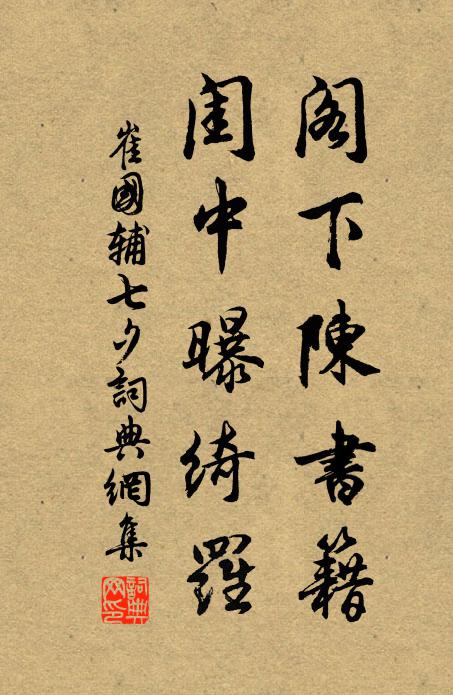 閣下陳書籍
閨中曝綺羅
崔國輔七夕詞典網集
詞典網印